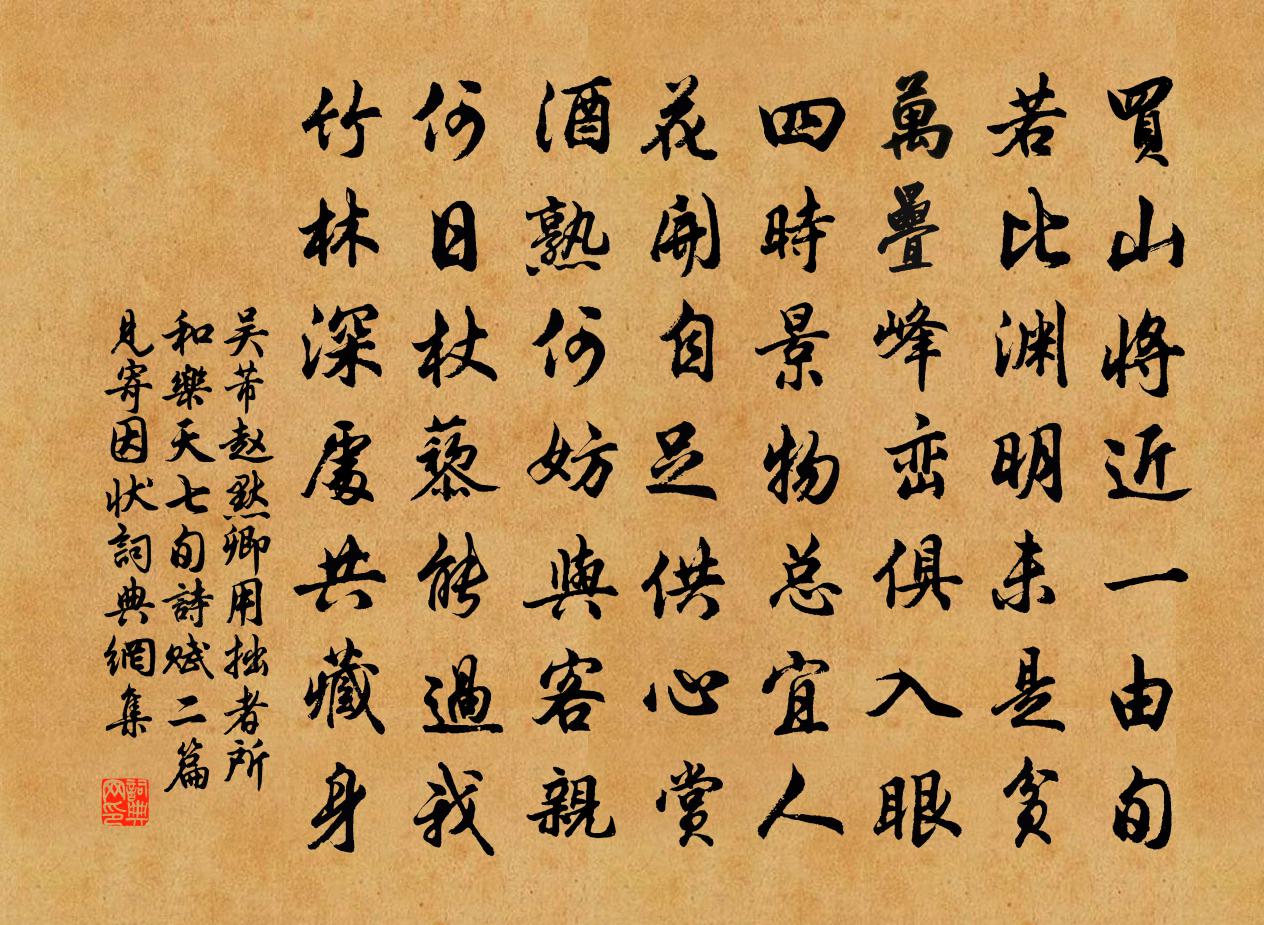 買山將近一由旬
若比渊明未是貧
萬疊峰巒俱入眼
四時景物总宜人
花開自足供心賞
酒熟何妨與客親
何日杖藜能過我
竹林深處共藏身
吴芾赵黙卿用拙者所
和樂天七旬詩赋二篇
見寄因状詞典網集
詞典
网印